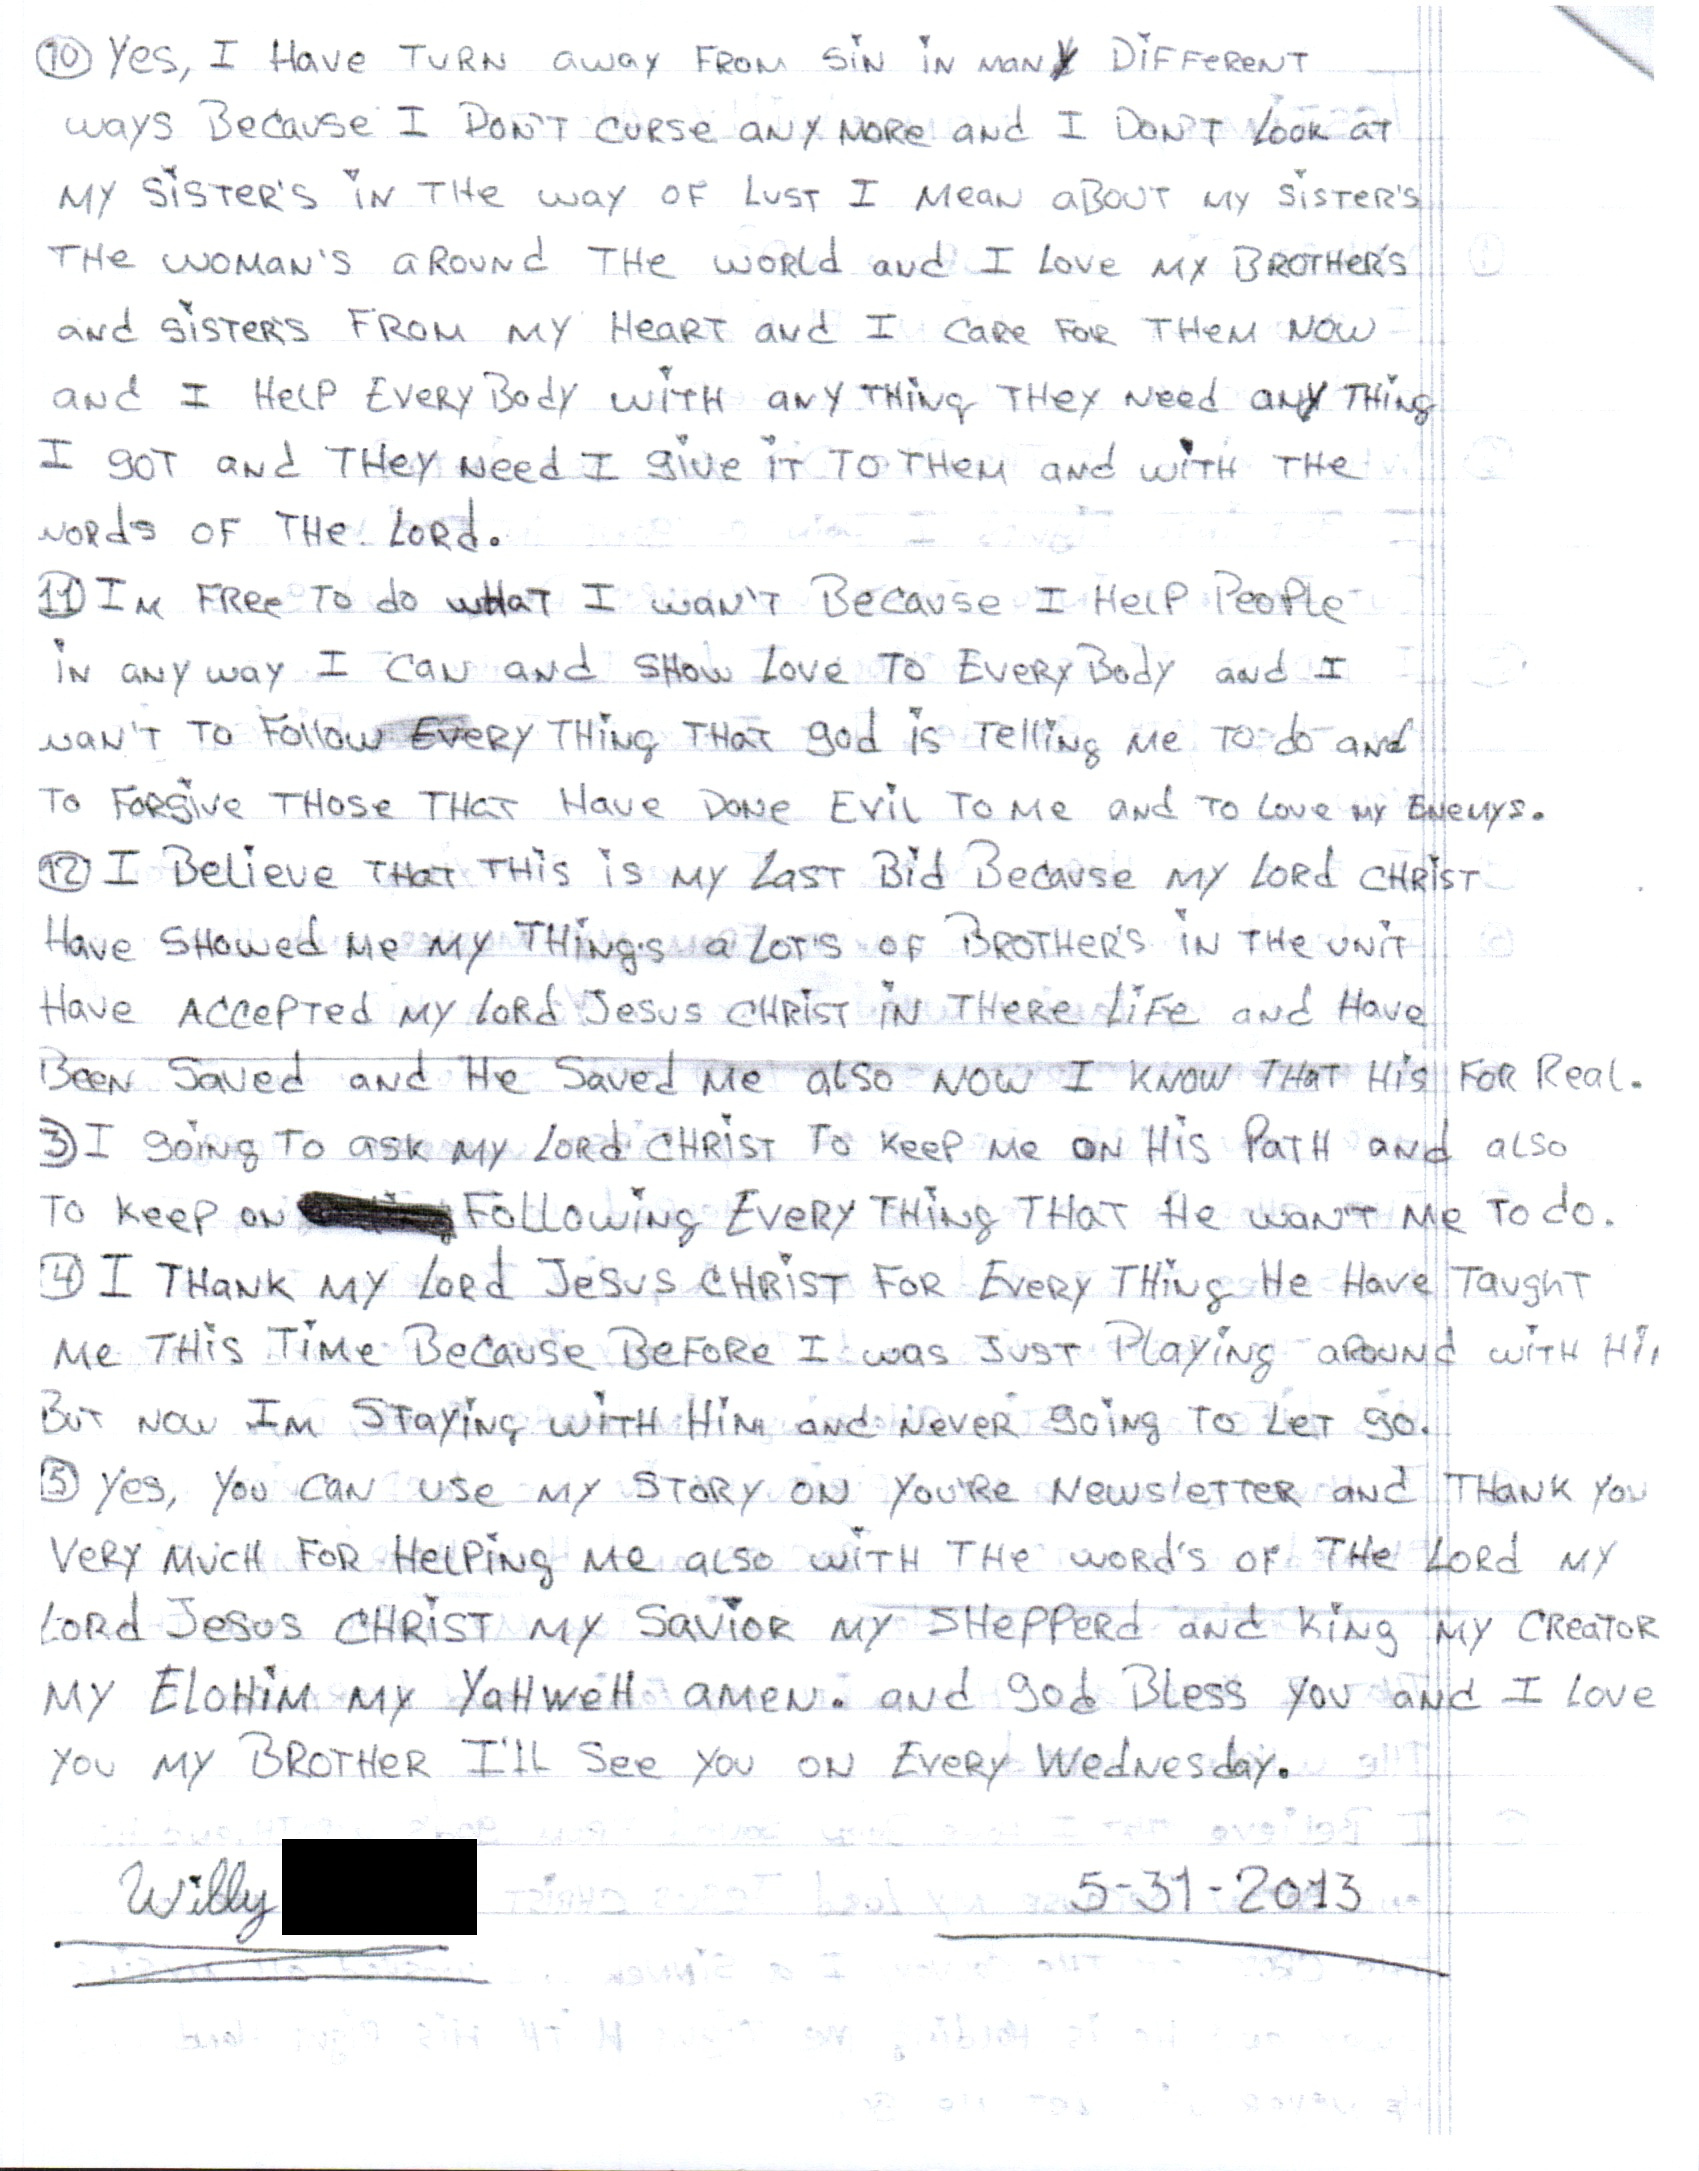 10 Yes, I Have TURN away FROM Sin in many DiFFeRenT
ways Because I DON'T curse any more and I DON'T Look aT
My SisTeR's in THe way OF LusT I Mean aBouT my SisTeR's
THe woman's aRound THe world and I Love my BROTHeR's
and SisTeRs FROM my HeaRT and I CaRe FOR THem NOW
and I HelP EveRy Body wiTH any THing THey Need any THing
I goT and THey Need I give iT To THem and wiTH THe
words OF THe LoRd.
11 Im FRee To do wHaT I wan'T Because I HelP PeoPle
in any way I Can and SHow Love To EveRy Body and I
wan'T To Follow EveRy THing THaT god is Telling me To do and
To FoRgive THose THaT Have Done Evil To Me and To Love my Enemys.
12 I Believe THaT THis is my LasT Bid Because my LoRd CHRisT
Have SHowed me my THing's a LoT's OF BROTHeR's in THe uniT
Have AccePTed my LoRd Jesus CHRisT in THeRe LiFe and Have
Been Saved and He Saved Me also NOW I KNOW THaT His FOR Real.
3 I going To ask my LoRd CHRisT To KeeP me on His PaTH and also
To KeeP on Following EveRy THing THaT He wan'T Me To do.
4 I THank my LoRd Jesus CHRisT FOR EveRy THing He Have TaughT
Me THis Time Because BeFoRe I was JusT Playing aRound wiTH
BuT now Im STaying wiTH Him and NeveR going To LeT go.
5 Yes, you Can use my SToRy on you'Re NewsleTTeR and THank you
VeRy MucH FOR HelPing me also wiTH THe woRd's OF THe LoRd my
LoRd Jesus CHRisT my SavioR my SHePPeRd and King my CReaToR
My EloHim my YaHweH amen. and god Bless you and I Love
you my BROTHeR I'll See you on EveRy Wednesday.
Willy 5-31-2013